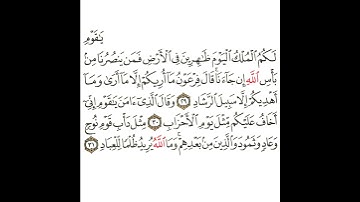 يَٰقَوْمِ
لَكُمُ ٱلْمُلْكُ ٱلْيَوْمَ ظَٰهِرِينَ فِى ٱلْأَرْضِ فَمَن يَنصُرُنَا مِنۢ
بَأْسِ ٱللَّهِ إِن جَآءَنَا ۚ قَالَ فِرْعَوْنُ مَآ أُرِيكُمْ إِلَّا مَآ أَرَىٰ وَمَآ
أَهْدِيكُمْ إِلَّا سَبِيلَ ٱلرَّشَادِ ٢٩ وَقَالَ ٱلَّذِىٓ ءَامَنَ يَٰقَوْمِ إِنِّىٓ
أَخَافُ عَلَيْكُم مِّثْلَ يَوْمِ ٱلْأَحْزَابِ ٣٠ مِثْلَ دَأْبِ قَوْمِ نُوحٍ
وَعَادٍ وَثَمُودَ وَٱلَّذِينَ مِنۢ بَعْدِهِمْ ۚ وَمَا ٱللَّهُ يُرِيدُ ظُلْمًا لِّلْعِبَادِ ٣١